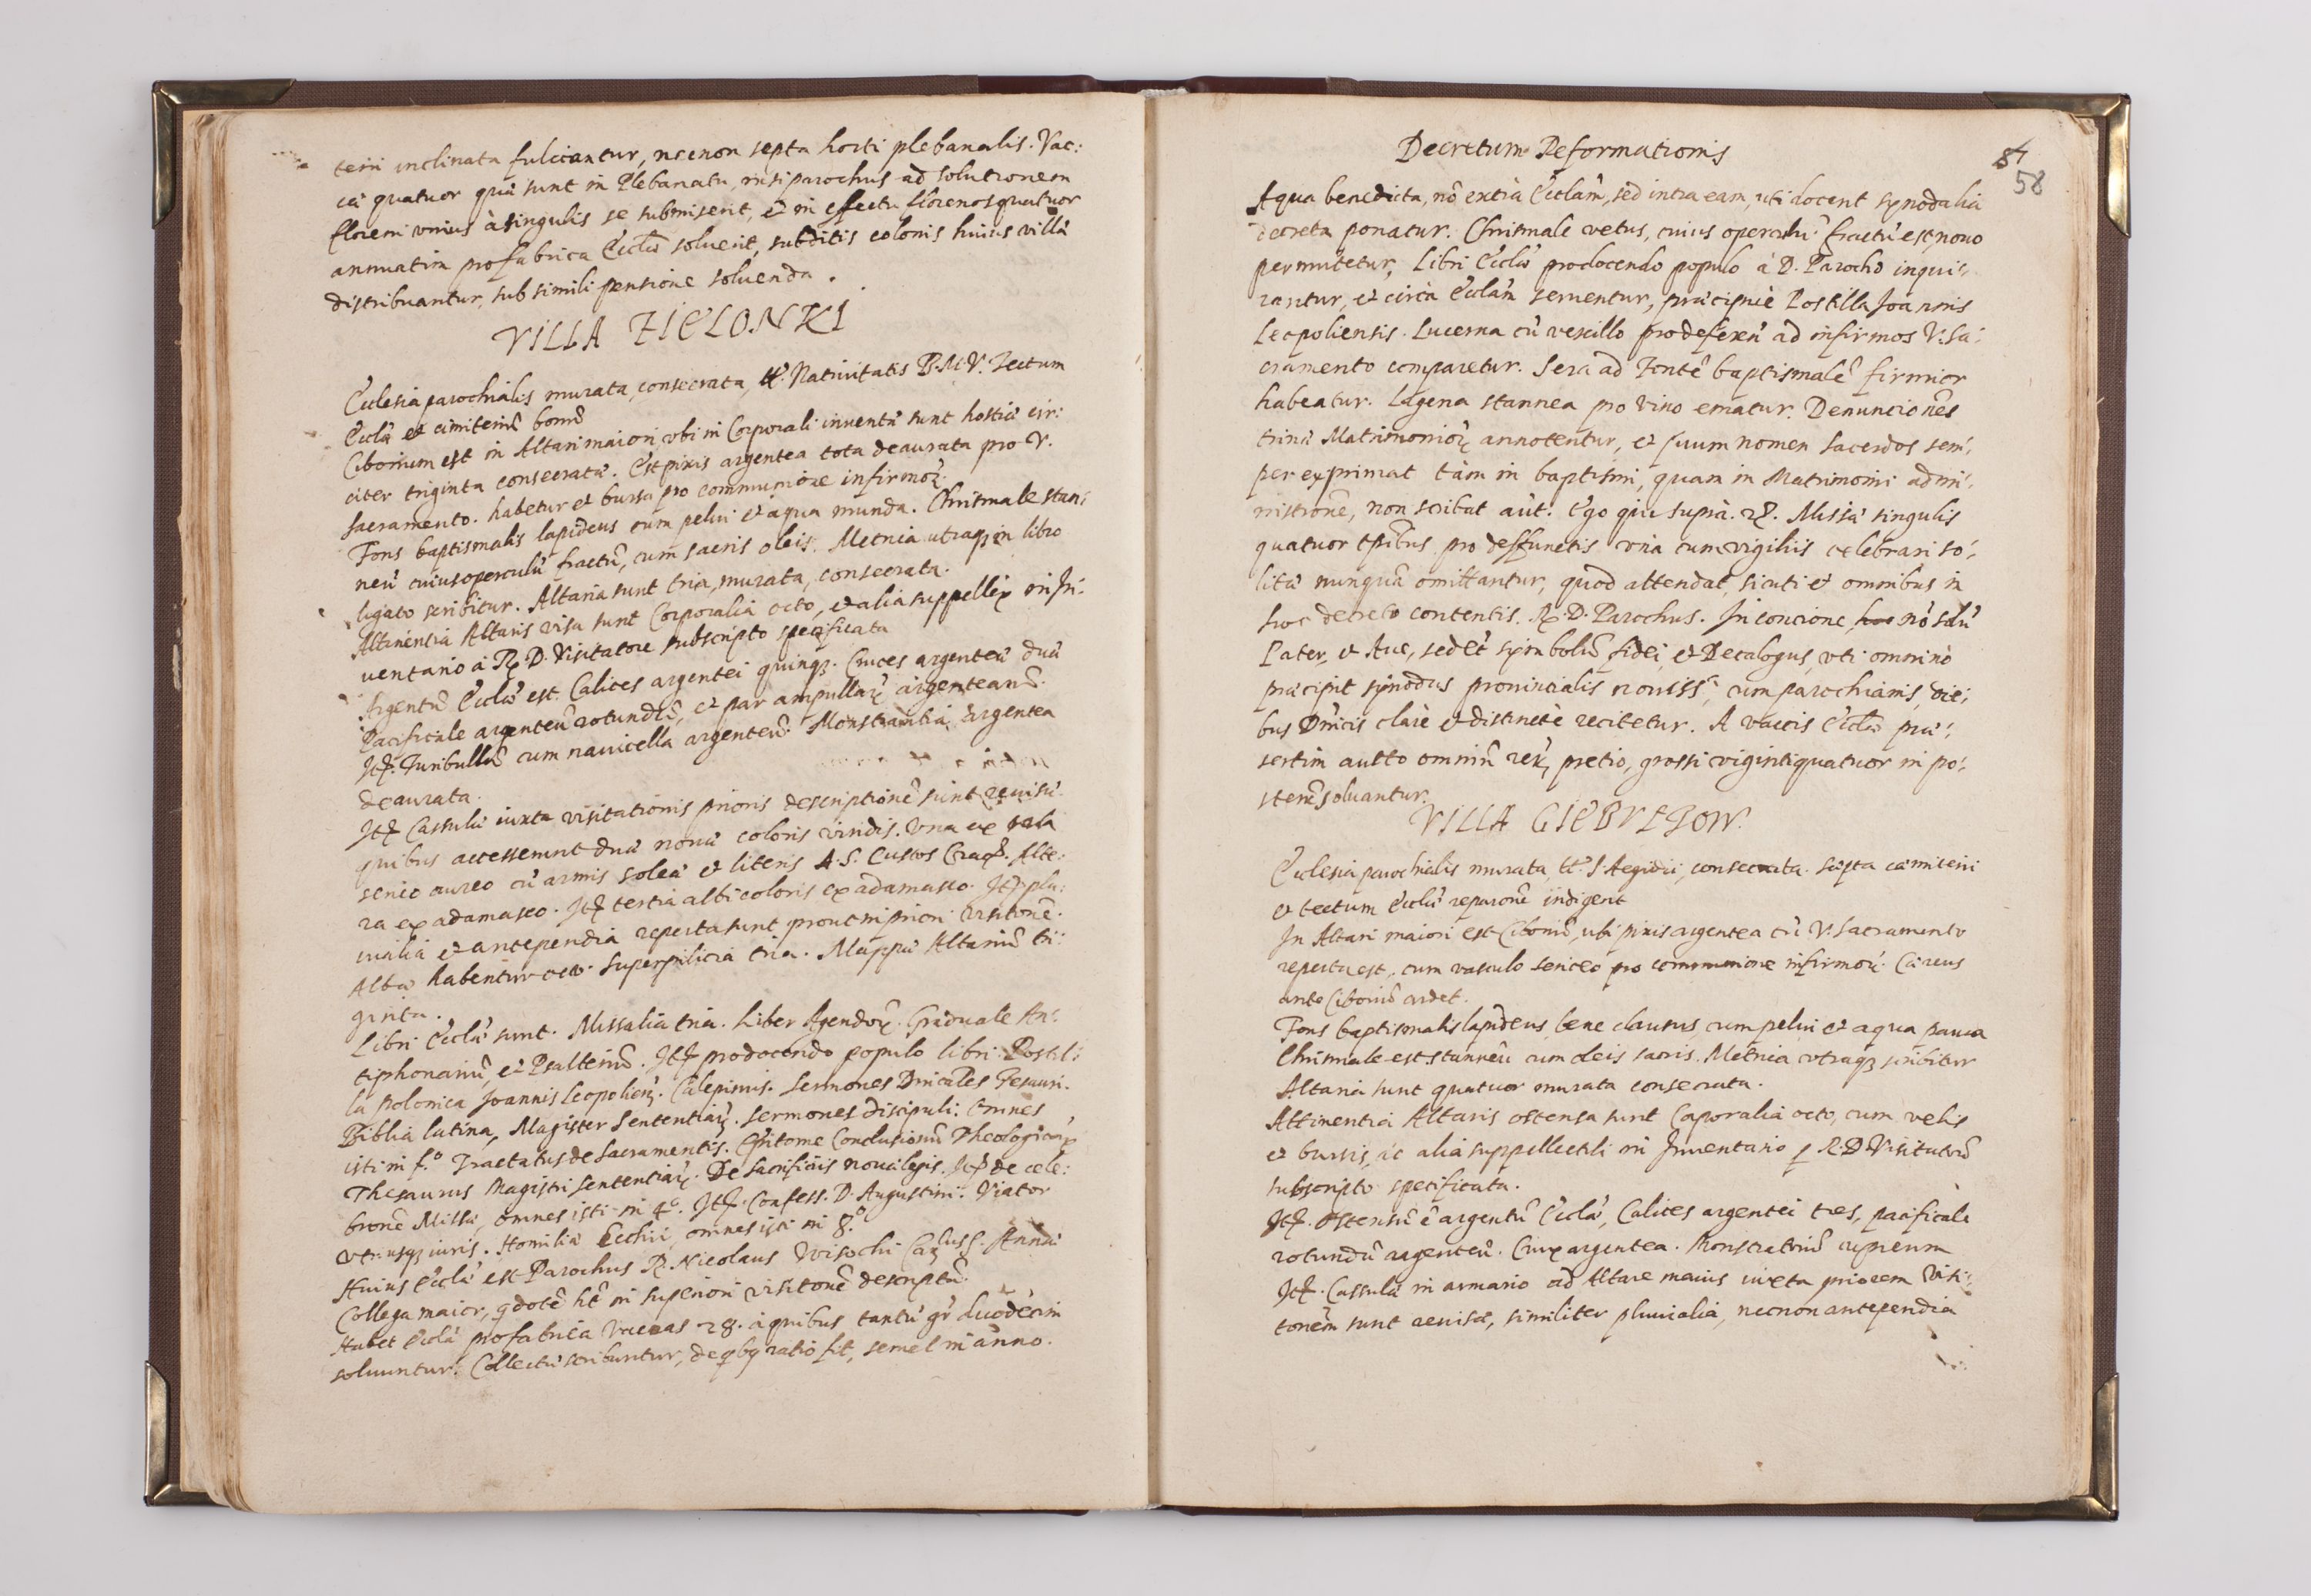 terii inclinata fulciantur, necnon septa horti plebanalis. Vac:
cæ quatuor quæ sunt in Plebanatu, nisi parochus ad solutionem
floreni unius à singulis se submiserit, et in effectu florenos quatuor
annuatim pro fabrica Eccłæ soluerit, subditis colonis huius villæ
distribuantur, sub simili pensione soluenda.
VILLA ZIELONKI
Ecclesia parochialis murata, consecrata, tt. Natiuitatis B.M.V. Tectum
Eccłæ et cimiteriū bonū
Ciborium est in Altari maiori ubi in Corporali inuentæ sunt hostiæ cir:
citer triginta consecratæ. Est pixis argentea tota deaurata pro V.
Sacramento. habetur et bursa pro communione infirmorꝫ.
Fons baptismalis lapideus cum pelui et aqua munda. Chrismale stan:
neū cuius operculū fractū, cum sacris oleis. Metrica utraqꝫ in libro
ligato scribitur. Altaria sunt tria, murata, consecrata.
Attinentia Altaris visa sunt Corporalia octo, et alia suppellex in In:
uentario à R. D. Visitatore subscripto specificata
Argentū Eccłæ est Calices argentei quinqꝫ. Cruces argenteæ duæ
Pacificale argenteū rotundū, et par ampullarꝫ argentearū.
Itꝫ. Turibullū cum nauicella argenteū. Monstrantia argentea
deaurata.
Itꝫ Cassulæ iuxta visitationis prioris descriptionē sunt reuisæ.
quibus accesserunt duæ nouæ coloris viridis. Una ex tela
sericeo aureo cū armis soleæ et literis A.S. Custos Crac. Alte:
ra ex adamasco. Itꝫ tertia albi coloris ex adamasco. Itꝫ plu:
uialia et antependia reperta sunt prout in priori visitonē.
Albæ habentur octo. Superpilicia tria. Mappæ Altariū tri:
ginta.
Libri Eccłæ sunt. Missalia tria. Liber Agendorꝫ. Graduale An:
tiphonariū, et Psalteriū. Itꝫ pro docendo populo libri. Postil:
la Polonica Joannis Leopolien̄. Calepinus. Sermones Dn̄icales
Biblia latina, Magister Sententiarꝫ. Sermones discipuli. Omnes
isti in f.º Tractatus de Sacramentis. Epitome Conclusionū Theologicarꝫ
Thesaurus Magistri Sententiarꝫ. De Sacrificiis nouæ legis. Itꝫ de cele:
bronē Missæ, omnes isti in 4º. Itꝫ. Confess. D. Augustini. Viator
utriusqꝫ iuris. Homiliæ Ecchii, omnes isti in 8.º
Huius Eccłæ est Parochus R. Nicolaus Wisocki Annæ
Collega maior, q̃ dotē ht̄ in superiori visitonē descriptā.
Habet Eccłā pro fabrica vaccas 28. à quibus tantū gr̄ duodecim
soluuntur. Collectæ scribuntur, de q̃bꝫ ratio fit, semel in anno.
Decretum Reformationis
84
58
Aqua benedicta, nō extra Eccłam, sed intra eam, uti docent synodalia
decreta ponatur. Chrismale vetus, cuius operculū fractū est, nouo
permutetur, Libri Eccłæ pro docendo populo à D. Parocho inqui:
rantur, et circa Eccłam seruentur, præcipuè Postilla Joannis
Leopoliensis. Lucerna cū vexillo pro deferen̄ ad infirmos V. Sa:
cramento comparetur. Sera ad Fontē baptismalē firmior
habeatur. Lagena stannea pro vino ematur. Denunciones
trinæ Matrimoniorꝫ annotentur, et suum nomen Sacerdos sem:
per exprimat tàm in baptismi, quam in Matrimonii admi:
nistronē, non scribat aūt. Ego qui supra. 28. Missæ singulis
quatuor tp̄ibus pro deffunctis una cum vigiliis celebrari so:
litæ nunquā omittantur, quod attendat, sicuti et omnibus in
hoc decreto contentis. R. D. Parochus. In concione hoc nō solū
Pater, et Aue, sed et symbolū fidei, et Decalogus, uti omnino
præcipit synodus prouincialis nouiss.ª, cum parochianis, die:
bus Dn̄icis clarè et distinctè recitetur. A vaccis Eccłæ præ:
sertim aucto omniū rerꝫ pretio, grossi vigintiquatuor in po:
sterū soluantur.
VILLA GIEBVLTOW.
Ecclesia parochialis murata, tt. S. Aegidii, consecrata. Septa cæmiterii
et tectum Eccłæ reparone indigent
In Altari maiori est Ciboriū, ubi pixis argentea cū V. Sacramento
reperta est, cum vasculo sericeo pro communione infirmorꝫ. Cæreus
ante Ciboriū ardet.
Fons baptismalis lapideus, bene clausus cum pelui et aqua pauca
Chrismale est stanneū cum oleis sacris. Metrica utraqꝫ scribitur
Altaria sunt quatuor murata consecrata.
Attinentia Altaris ostensa sunt Corporalia octo, cum velis
et bursis, ac alia suppellectili in Inuentario p R. D. Visitatorē
subscripto specificata.
Itꝫ. Ostensū ē argentū Eccłæ, Calices argentei tres, pacificale
rotundū argenteū. Crux argentea. Monstratoriū cupreum
Itꝫ. Cassulæ in armario ad Altare maius iuxta priorem Visi:
tonēm sunt reuisæ, similiter pluuialia, necnon antependia